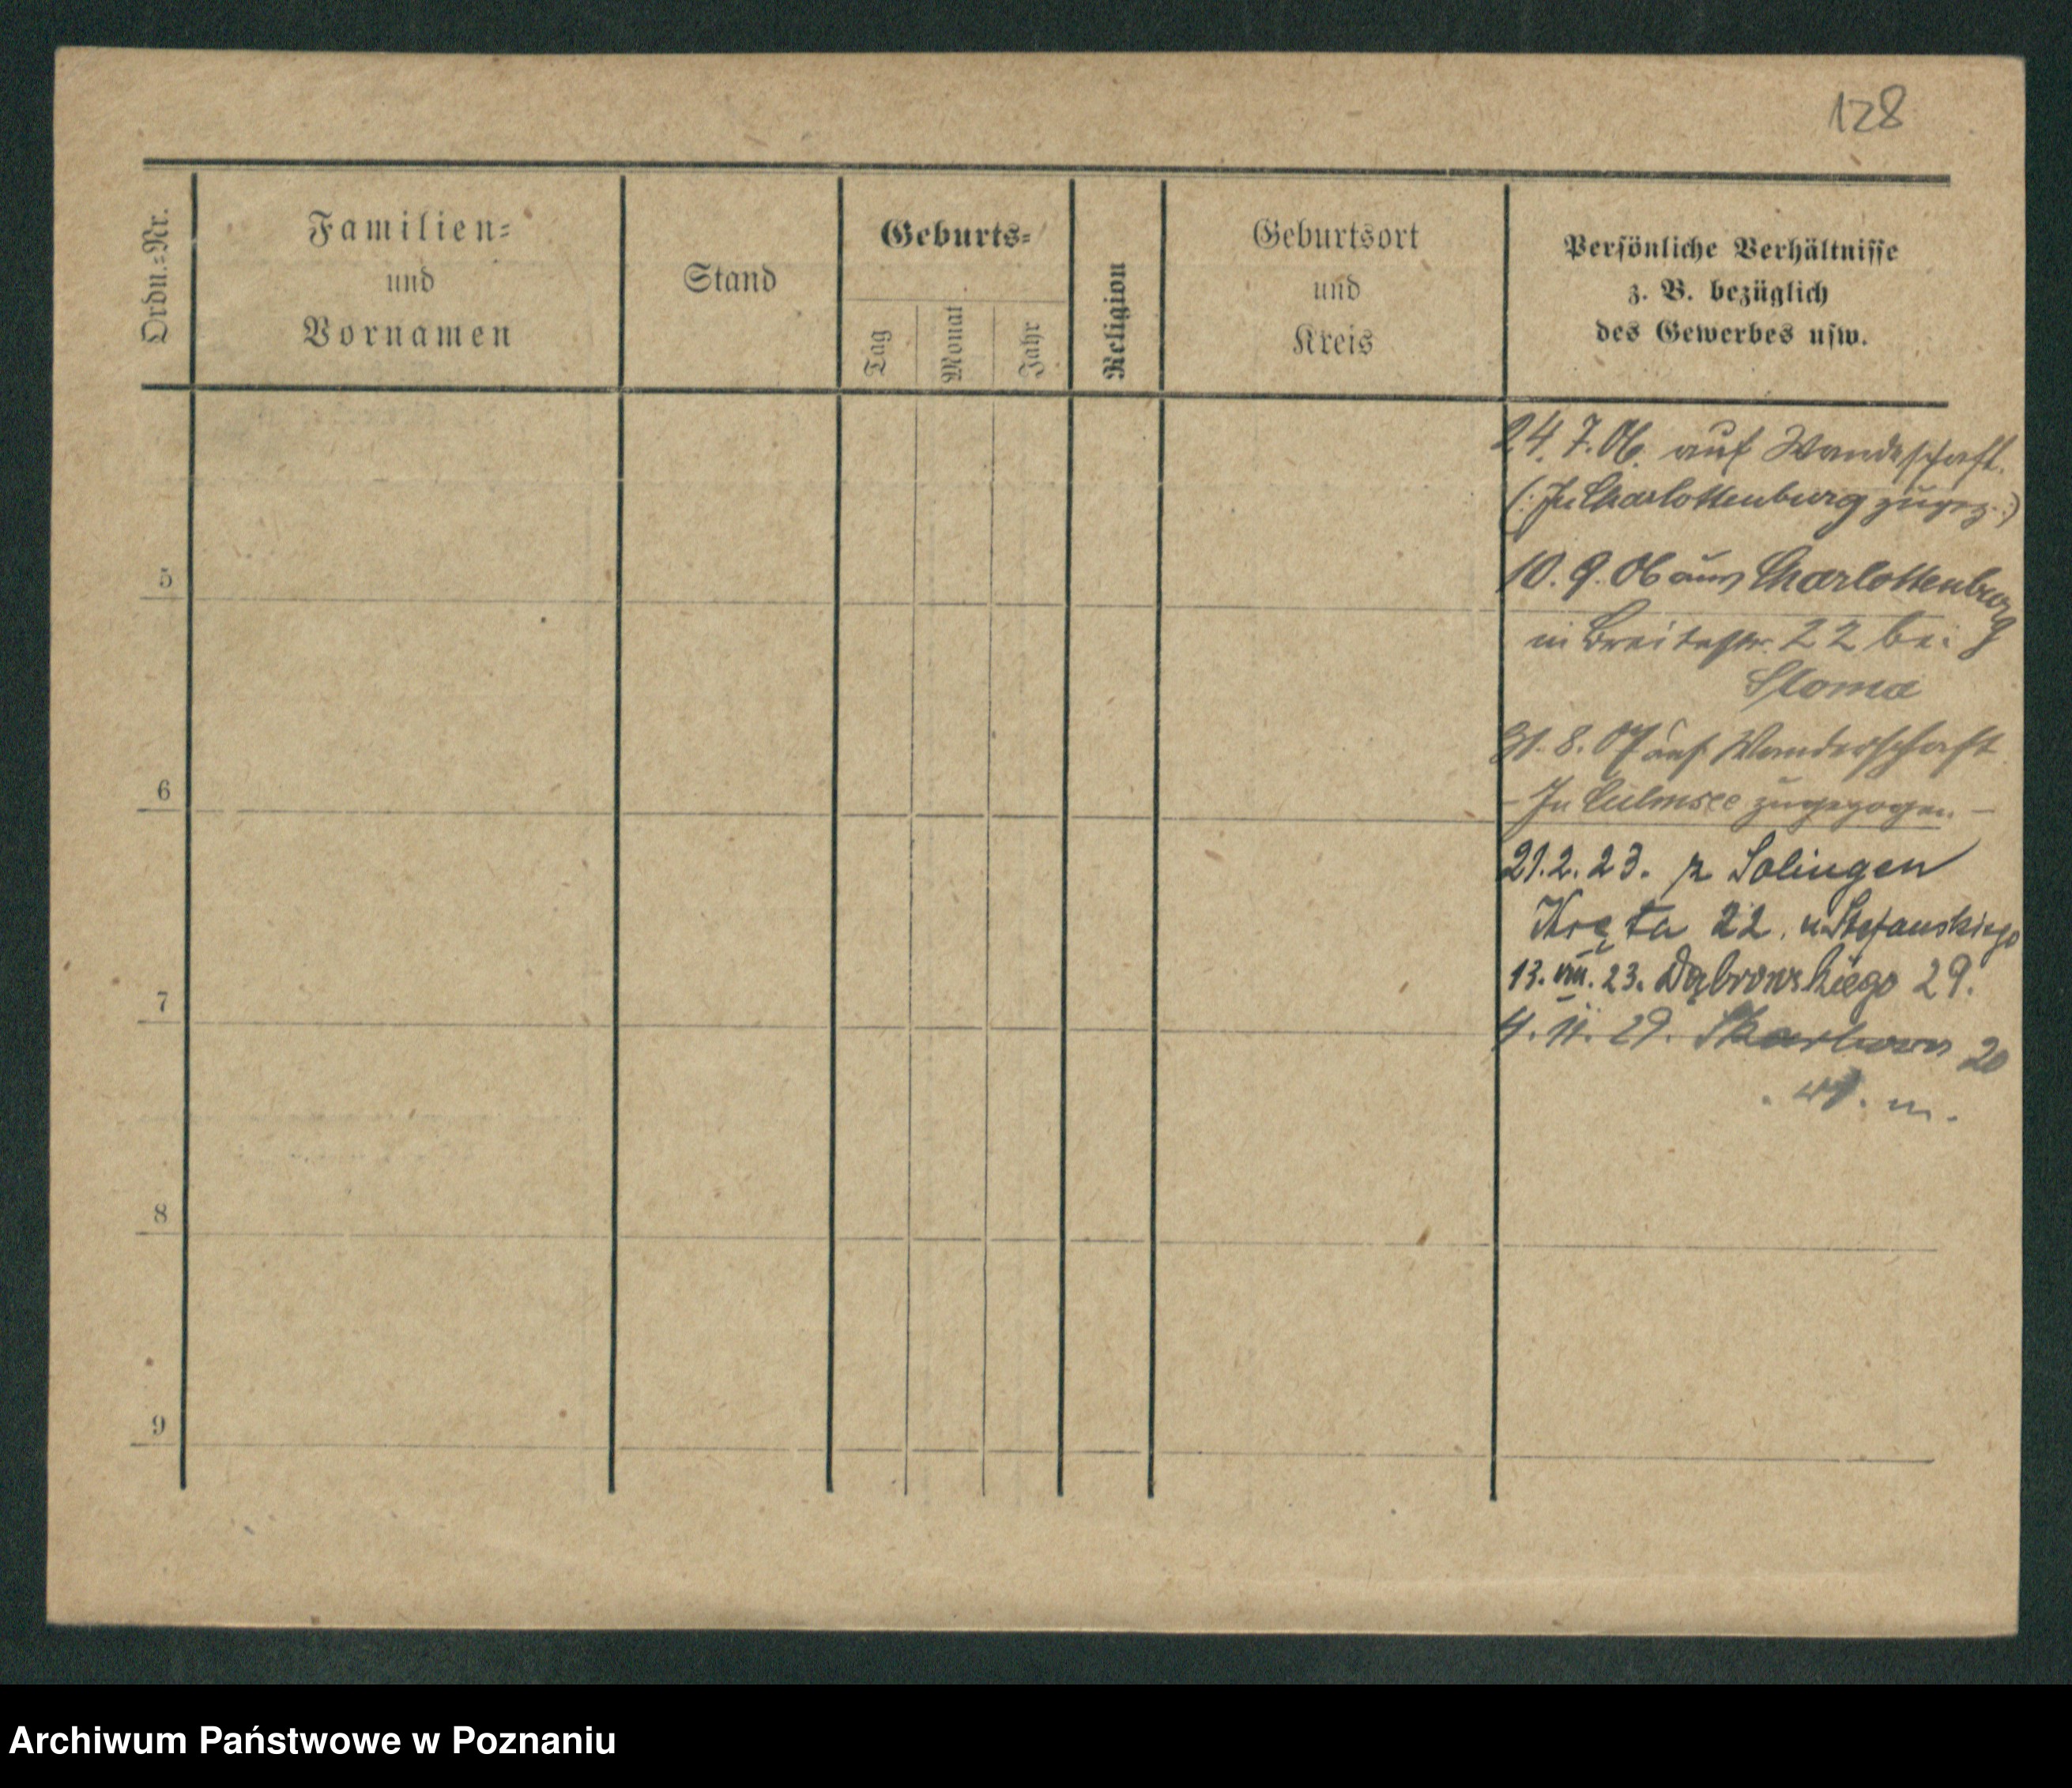 128
Ordn.=Nr.
Familien=
und
Vornamen
Stand
Geburts=
Tag
Monat
Jahr
Religion
Geburtsort
und
Kreis
Persönliche Verhältnisse
z. B. bezüglich
des Gewerbes usw.
24.7.06. auf Wandeschaft.
(: In Charlottenburg zugez. :)
10. 9. 06 aus Charlottenburg
in Breitestr. 22 bei
Sloma
5
31. 8. 07 auf Wanderschaft
- In Culmsee zugezogen. -
6
21.2.23. z Solingen
Kręta 22. u Stefanskiego
13. VIII. 23. Dąbrowskiego 29.
7
4. 11. 29. 20
m.
8
9
Archiwum Państwowe w Poznaniu